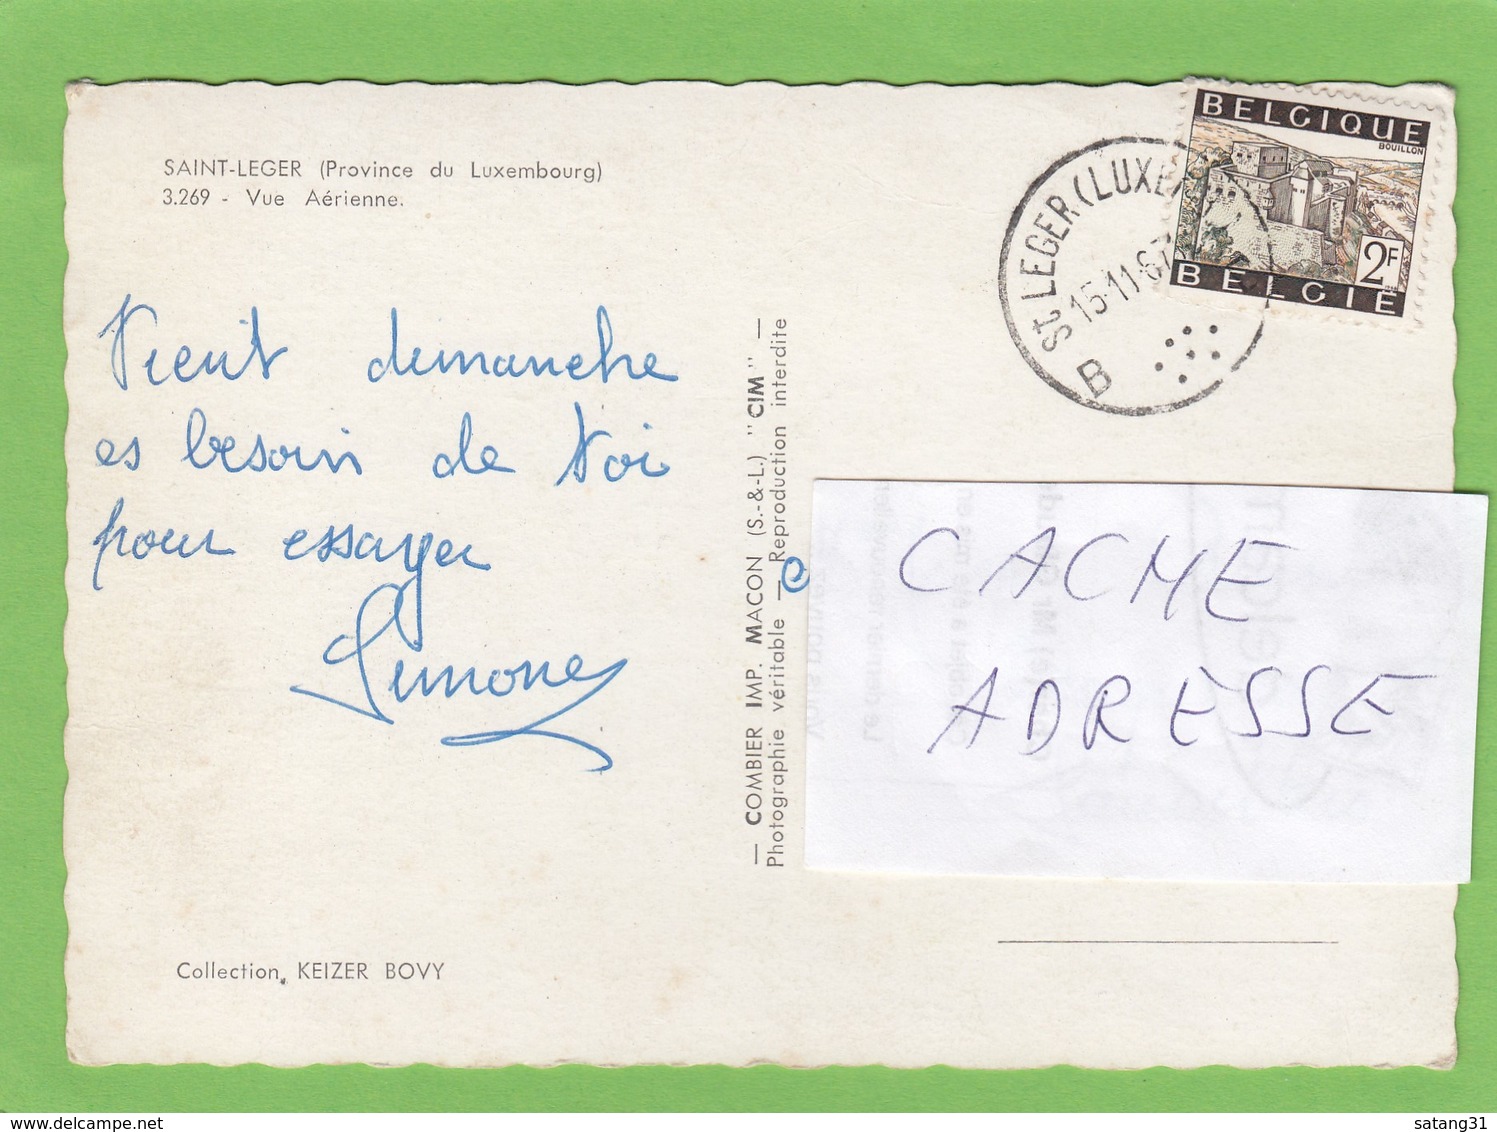 SAINT-LEGER (Province du Luxembourg)
3.269 - Vue Aérienne.
Vient dimanche
es besoin de toi
pour essayer
Simone
Collection, KEIZER BOVY
— COMBIER IMP. MACON (S.-&-L.) "CIM" —
Photographie véritable — Reproduction interdite
BELGIQUE
BOUILLON
2F
BELGIE
ST LEGER (LUXE
15-11-67
B
CACHE
ADRESSE
satang31